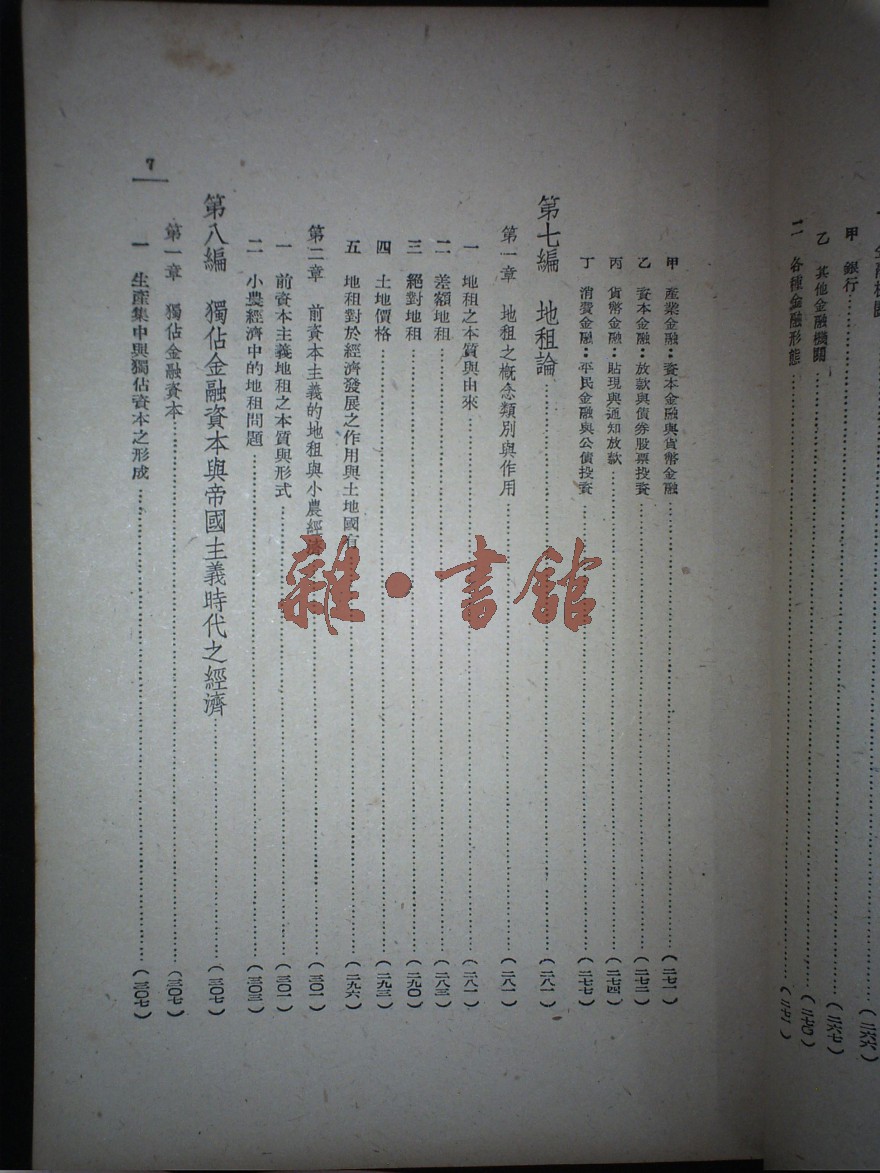 甲 銀行……(二六六)
乙 其他金融機關……(二六七)
二 各種金融形態……(二七〇)
甲 產業金融：資本金融與貨幣金融……(二七一)
乙 資本金融：放款與債券股票投資……(二七二)
丙 貨幣金融：貼現與通知放款……(二七四)
丁 消費金融：平民金融與公債投資……(二七七)
第七編 地租論……(二八一)
第一章 地租之概念類別與作用……(二八一)
一 地租之本質與由來……(二八一)
二 差額地租……(二八三)
三 絕對地租……(二九〇)
四 土地價格……(二九三)
五 地租對於經濟發展之作用與土地國有……(二九六)
第二章 前資本主義的地租與小農經濟……(三〇一)
一 前資本主義地租之本質與形式……(三〇一)
二 小農經濟中的地租問題……(三〇三)
第八編 獨佔金融資本與帝國主義時代之經濟……(三〇七)
第一章 獨佔金融資本……(三〇七)
一 生產集中與獨佔資本之形成……(三〇七)
7
雜·書館